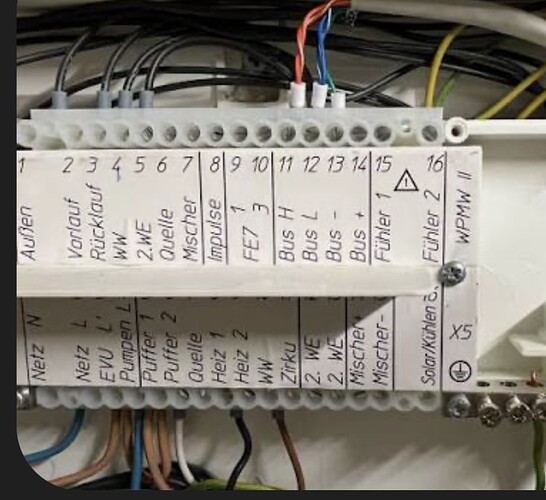 1 2 3 4 5 6 7 8 9 10 11 12 13 14 15 16
Außen
Vorlauf
Rücklauf
WW
2.WE
Quelle
Mischer
Impulse
FE7 1
3
Bus H
Bus L
Bus -
Bus +
Fühler 1
Fühler 2
WPMW II
Netz N
Netz L
EVU L'
Pumpen L
Puffer 1
Puffer 2
Quelle
Heiz 1
Heiz 2
WW
Zirku
2. WE
2. WE
Mischer+
Mischer-
Solar/Kühlen
X5